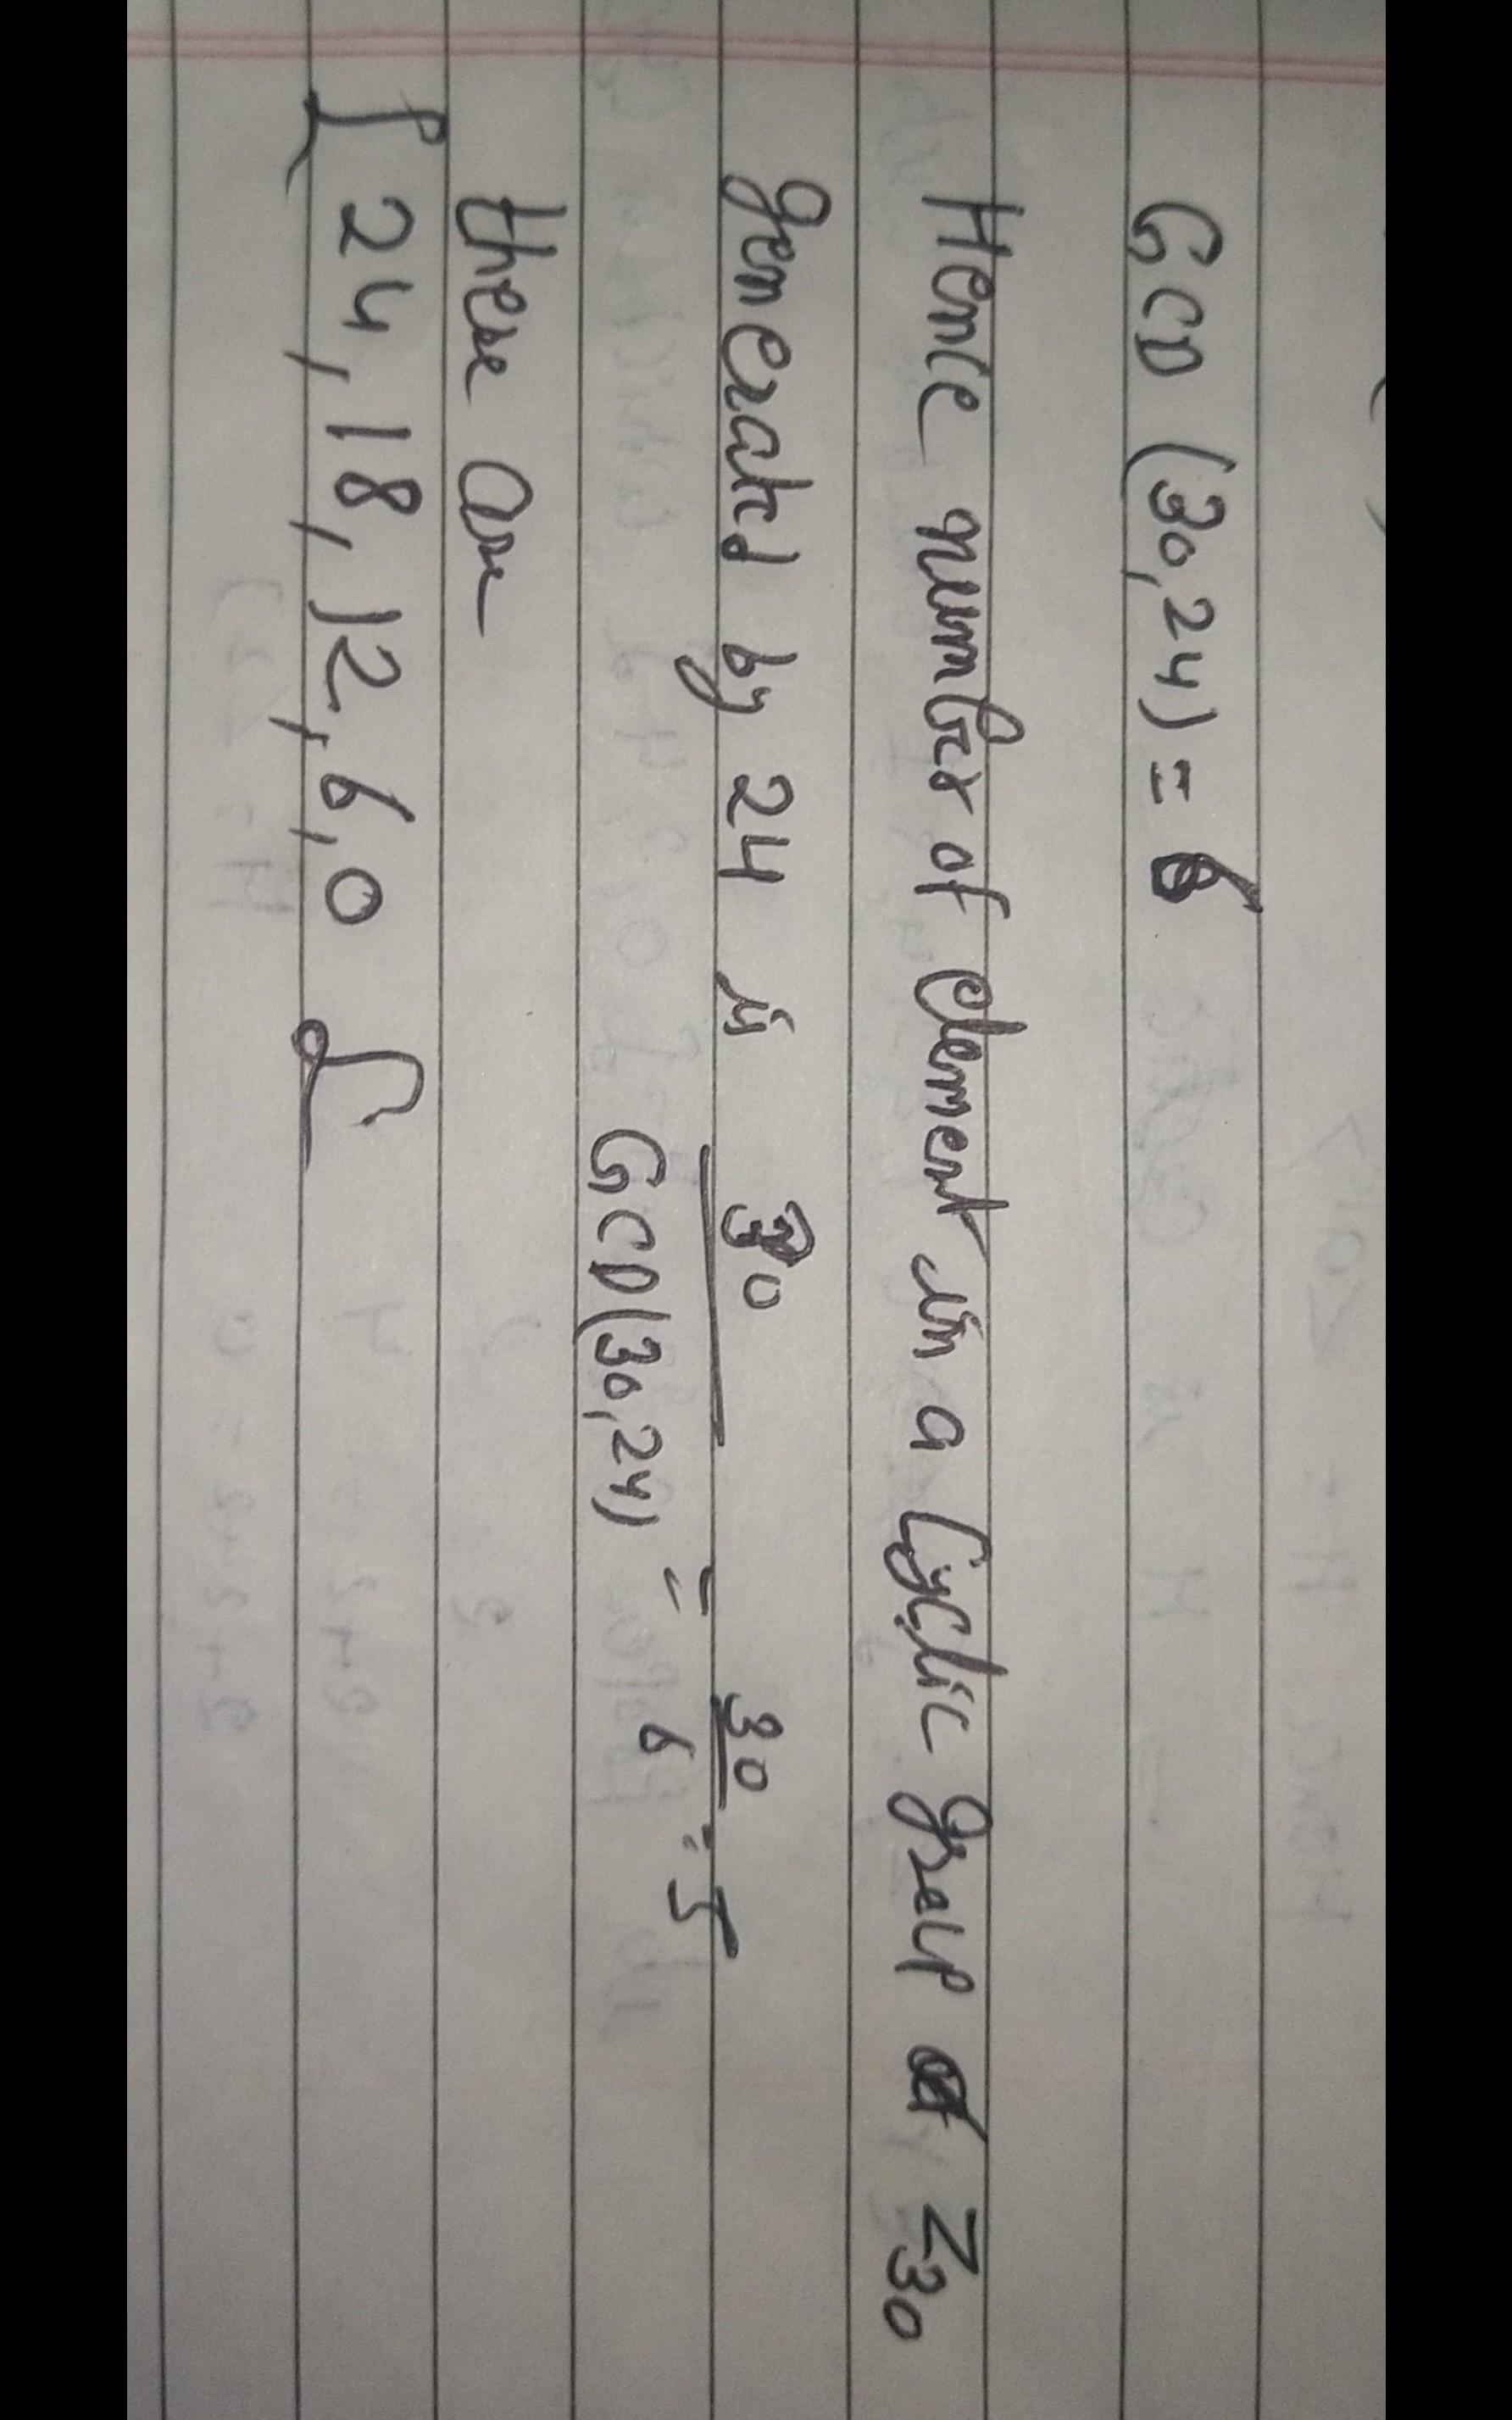 GCD (30,24) = 6
Hence number of element in a Cyclic group of Z30
generated by 24 is 30 / GCD(30,24) = 30 / 6 = 5
these are
{ 24, 18, 12, 6, 0 }